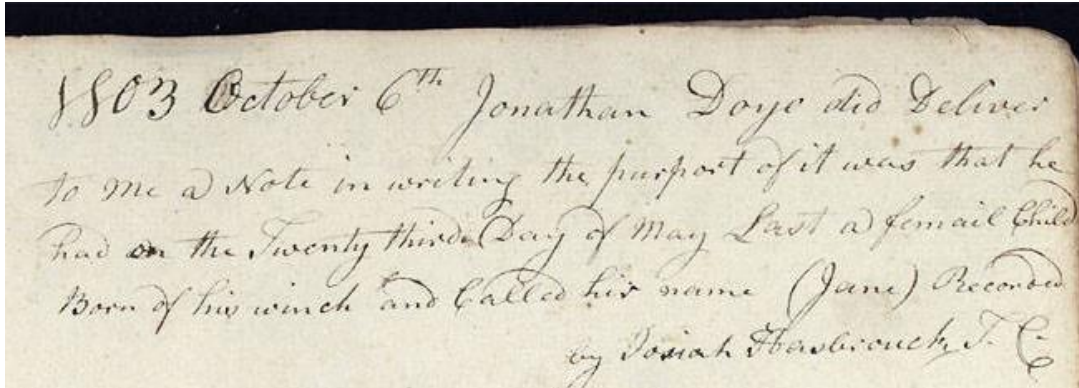 1803 October 6th Jonathan Doyo did Deliver
to me a Note in writing the purport of it was that he
had on the Twenty third Day of May Last a femail Child
Born of his winch and Called his name (Jane) Recorded
by Josiah Hasbrouck, T. C.